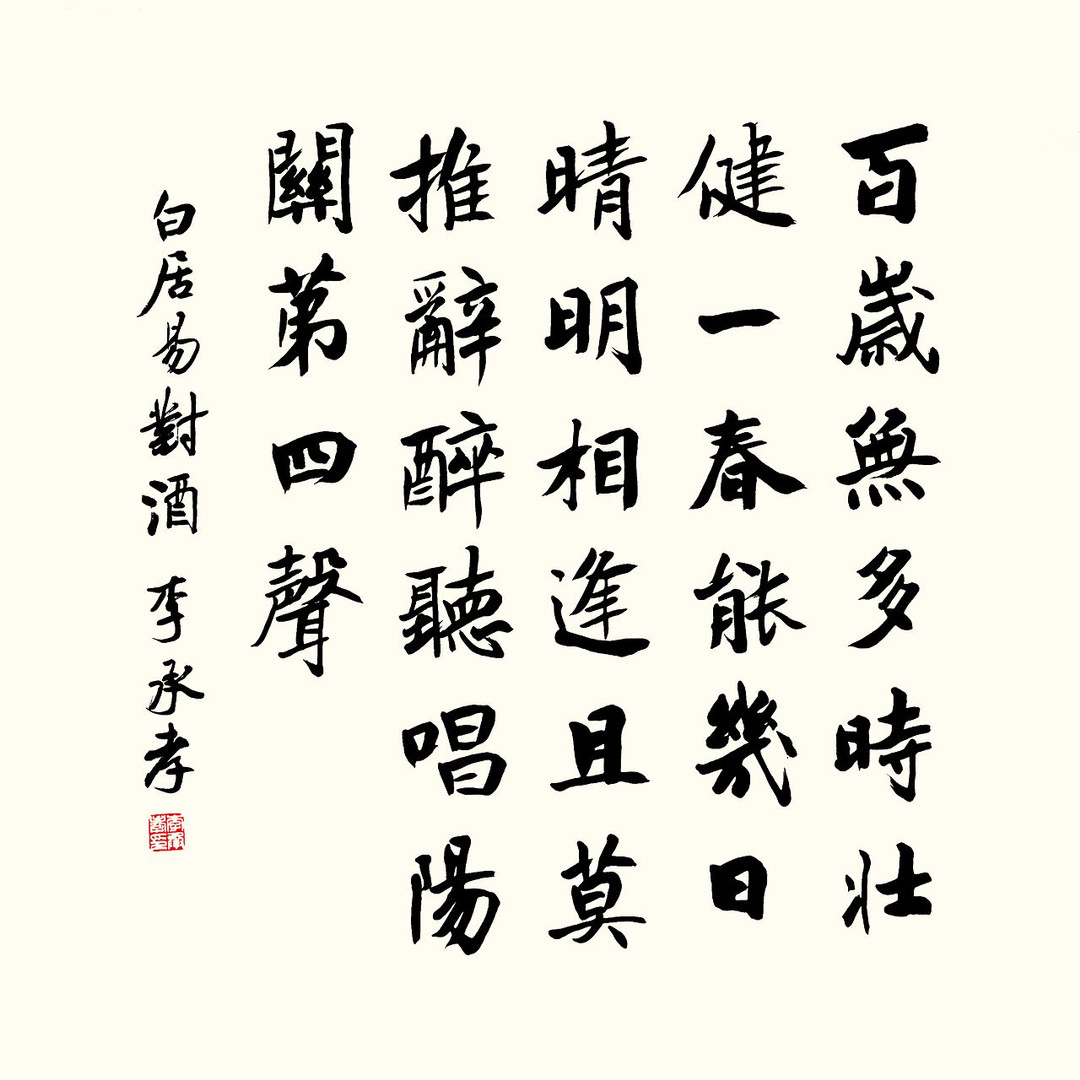 百歲無多時壯
健一春能幾日
晴明相逢且莫
推辭醉聽唱陽
關第四聲
白居易對酒 李承孝